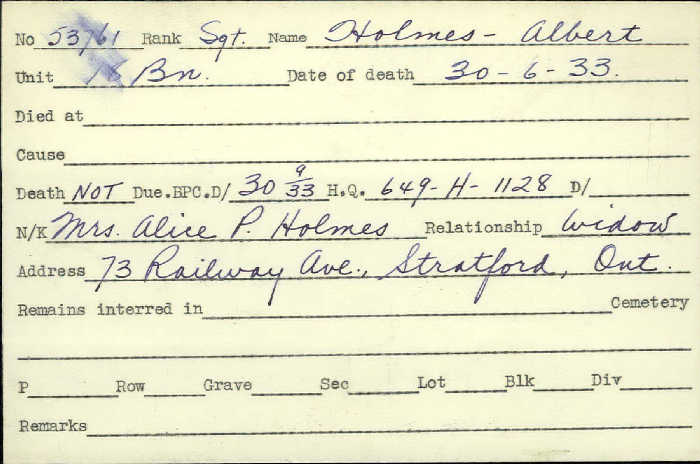 No 53761 Rank Sgt. Name Holmes - Albert
Unit 18 Bn. Date of death 30 - 6 - 33.
Died at
Cause
Death NOT Due.BPC.D/ 30 9/33 H.Q. 649-H-1128 D/
N/K Mrs. Alice P. Holmes Relationship widow
Address 73 Railway Ave., Stratford, Ont.
Remains interred in Cemetery
P Row Grave Sec Lot Blk Div
Remarks